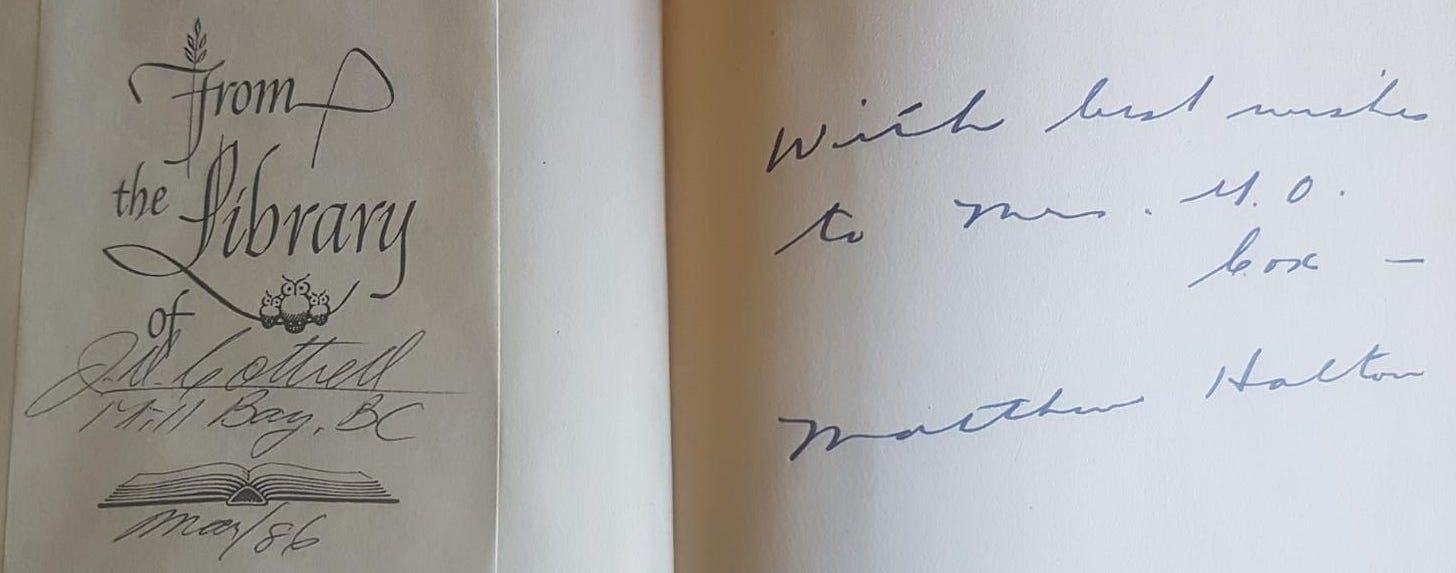 From
the Library
of
J.W. Cottrell
Mill Bay, BC
Mar/86
With best wishes
to Mrs. G.O.
Cox —
Matthew Halton